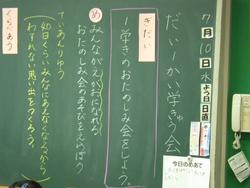 7月10日水よう日 日直
だい一かい学きゅう会
ぎだい
一学きのおたのしみ会をしよう。
め
みんながえがおになれる
おたのしみ会のあそびをえらぼう
ていあんりゆう
40日くらいみんなにあえなくなるから
わすれない思い出をつくろう。
くらべあう
今日のめあて